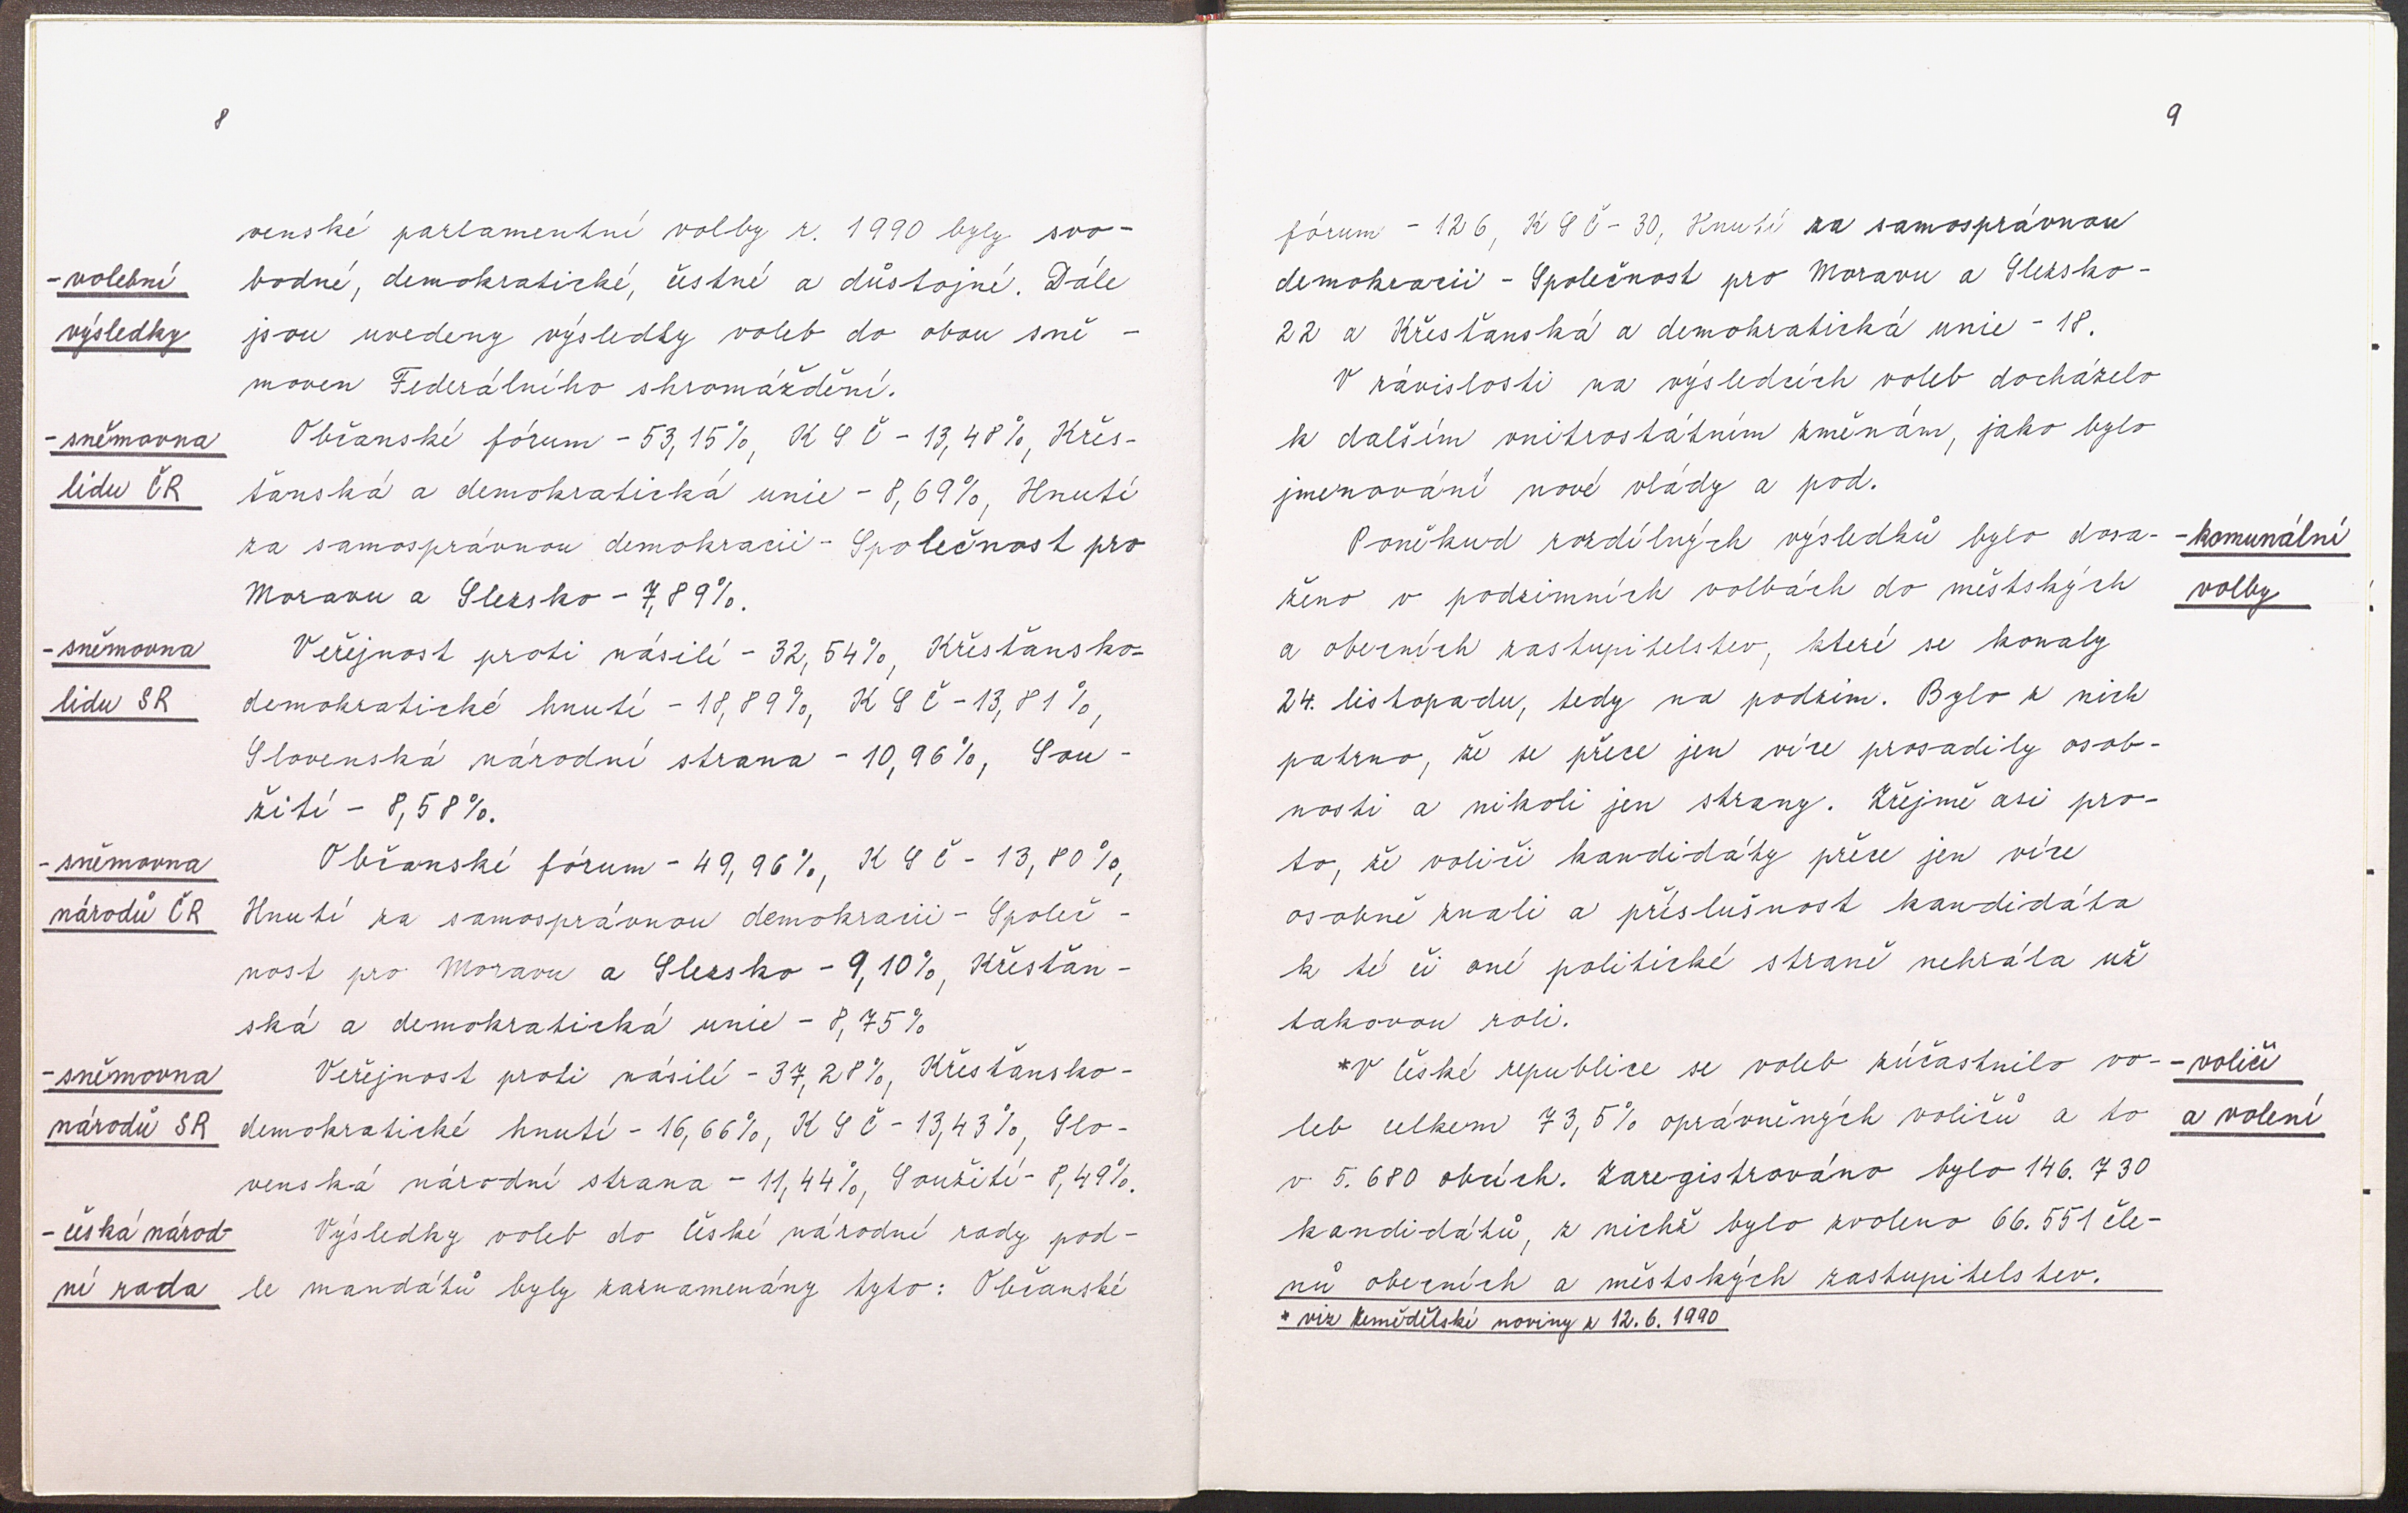 8
venské parlamentní volby r. 1990 byly svo-
- volební
bodné, demokratické, čestné a důstojné. Dále
výsledky
jsou uvedeny výsledky voleb do obou sně-
moven Federálního shromáždění.
- sněmovna
Občanské fórum - 53,15%, KSČ - 13,48%, Křes-
lidu ČR
ťanská a demokratická unie - 8,69%, Hnutí
za samosprávnou demokracii - Společnost pro
Moravu a Slezsko - 7,89%.
- sněmovna
Veřejnost proti násilí - 32,54%, Křesťansko-
lidu SR
demokratické hnutí - 18,89%, KSČ - 13,81%,
Slovenská národní strana - 10,96%, Sou-
žití - 8,58%.
- sněmovna
Občanské fórum - 49,96%, KSČ - 13,80%,
národů ČR
Hnutí za samosprávnou demokracii - Společ-
nost pro Moravu a Slezsko - 9,10%, Křesťan-
ská a demokratická unie - 8,75%
- sněmovna
Veřejnost proti násilí - 37,28%, Křesťansko-
národů SR
demokratické hnutí - 16,66%, KSČ - 13,43%, Slo-
venská národní strana - 11,44%, Soužití - 8,49%.
- česká národ-
Výsledky voleb do České národní rady pod-
ní rada
le mandátů byly zaznamenány tyto: Občanské
9
fórum - 126, KSČ - 30, Hnutí za samosprávnou
demokracii - Společnost pro Moravu a Slezsko -
22 a Křesťanská a demokratická unie - 18.
V závislosti na výsledcích voleb docházelo
k dalším vnitrostátním změnám, jako bylo
jmenování nové vlády a pod.
Poněkud rozdílných výsledků bylo dosa-
- komunální
ženo v podzimních volbách do městských
volby
a obecních zastupitelstev, které se konaly
24. listopadu, tedy na podzim. Bylo z nich
patrno, že se přece jen více prosadily osob-
nosti a nikoli jen strany. Zřejmě asi pro-
to, že voliči kandidáty přece jen více
osobně znali a příslušnost kandidáta
k té či oné politické straně nehrála už
takovou roli.
*V České republice se voleb zúčastnilo vo-
- voliči
leb celkem 73,5% oprávněných voličů a to
a volení
v 5.680 obcích. Zaregistrováno bylo 146.730
kandidátů, z nichž bylo zvoleno 66.551 čle-
nů obecních a městských zastupitelstev.
* viz Zemědělské noviny z 12.6.1990